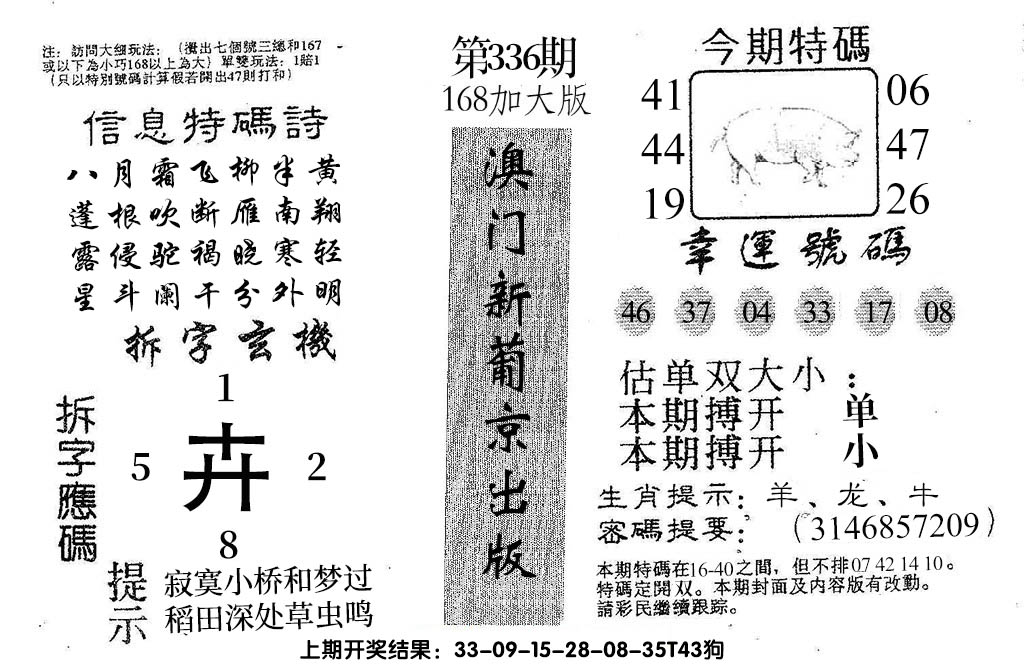 注：訪問大细玩法：（攪出七個號三總和167
或以下為小巧168以上為大）單雙玩法：1賠1
（只以特別號碼計算假若開出47則打和）
信息特碼詩
八月霜飞柳半黄
蓬根吹断雁南翔
露侵驼褐晓寒轻
星斗阑干分外明
拆字玄機
拆字應碼
1
5
卉
2
8
提示
寂寞小桥和梦过
稻田深处草虫鸣
第336期
168加大版
澳门新葡京出版
今期特碼
41
06
44
47
19
26
幸運號碼
46 37 04 33 17 08
估单双大小：
本期搏开 单
本期搏开 小
生肖提示：羊、龙、牛
密碼提要：（3146857209）
本期特碼在16-40之間，但不排07 42 14 10。
特碼定開双。本期封面及内容版有改動。
請彩民繼續跟踪。
上期开奖结果：33-09-15-28-08-35T43狗